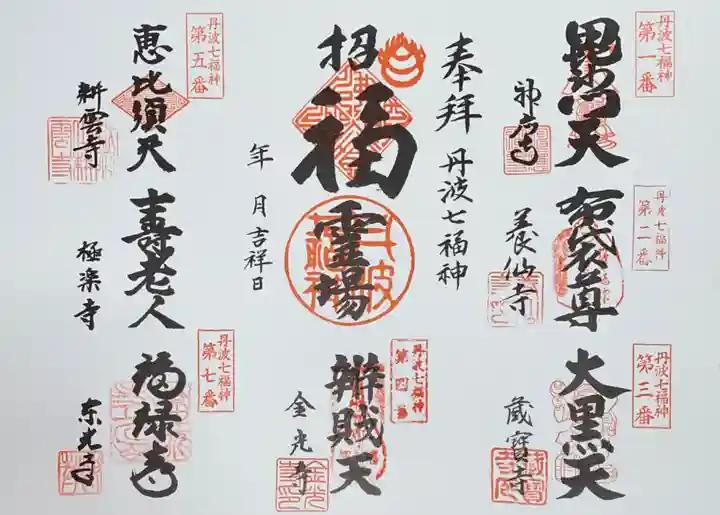 丹波七福神
第一番
毘沙門天
神應寺
丹波七福神
第二番
布袋尊
養仙寺
丹波七福神
第三番
大黒天
蔵寳寺
奉拝 丹波七福神
招福霊場
丹波
年 月吉祥日
丹波七福神
第四番
辨財天
金光寺
丹波七福神
第五番
恵比須天
耕雲寺
壽老人
極楽寺
丹波七福神
第七番
福禄寿
东光寺